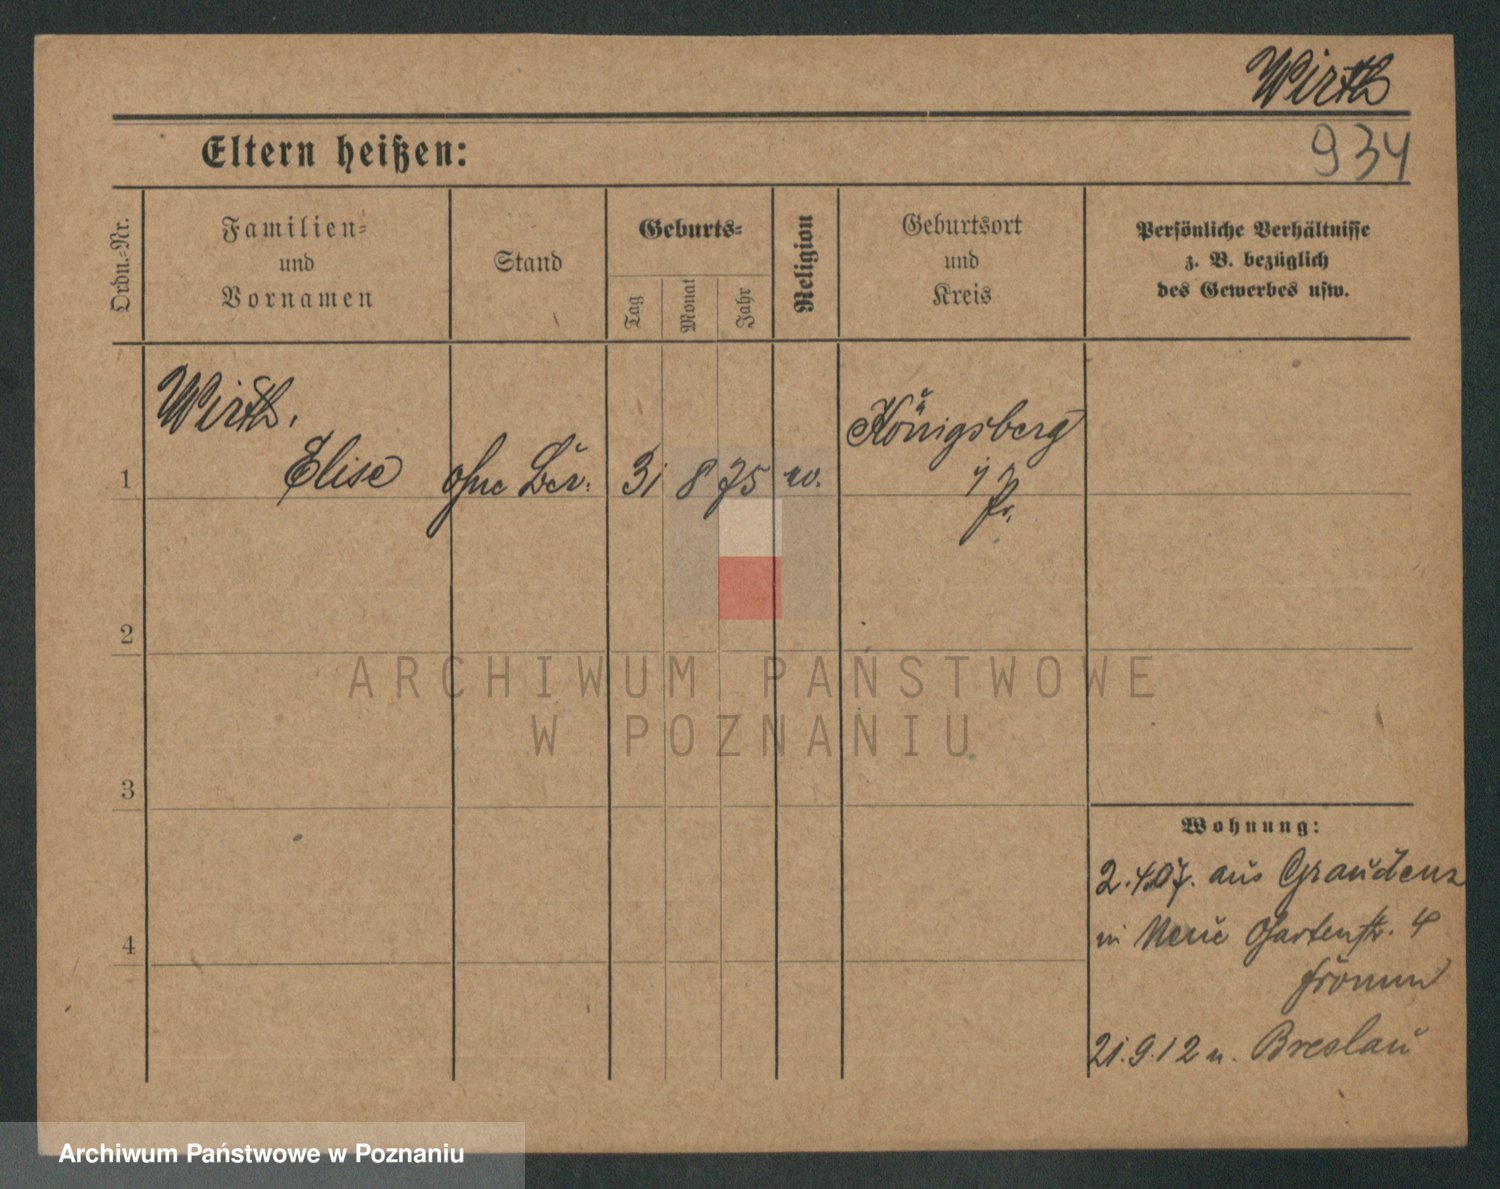 Wirth
Eltern heißen:
934
Ordn.-Nr.
Familien=
und
Vornamen
Stand
Geburts=
Tag
Monat
Jahr
Religion
Geburtsort
und
Kreis
Persönliche Verhältnisse
z. B. bezüglich
des Gewerbes usw.
Wirth,
Elise
ohne Ber.
31
8
75
Königsberg
Pr.
1
2
3
4
ARCHIWUM PAŃSTWOWE
W POZNANIU
Wohnung:
2.4.07. aus Graudenz
in Neue Gartenstr. 4
Fromm
21.9.12 n. Breslau
Archiwum Państwowe w Poznaniu